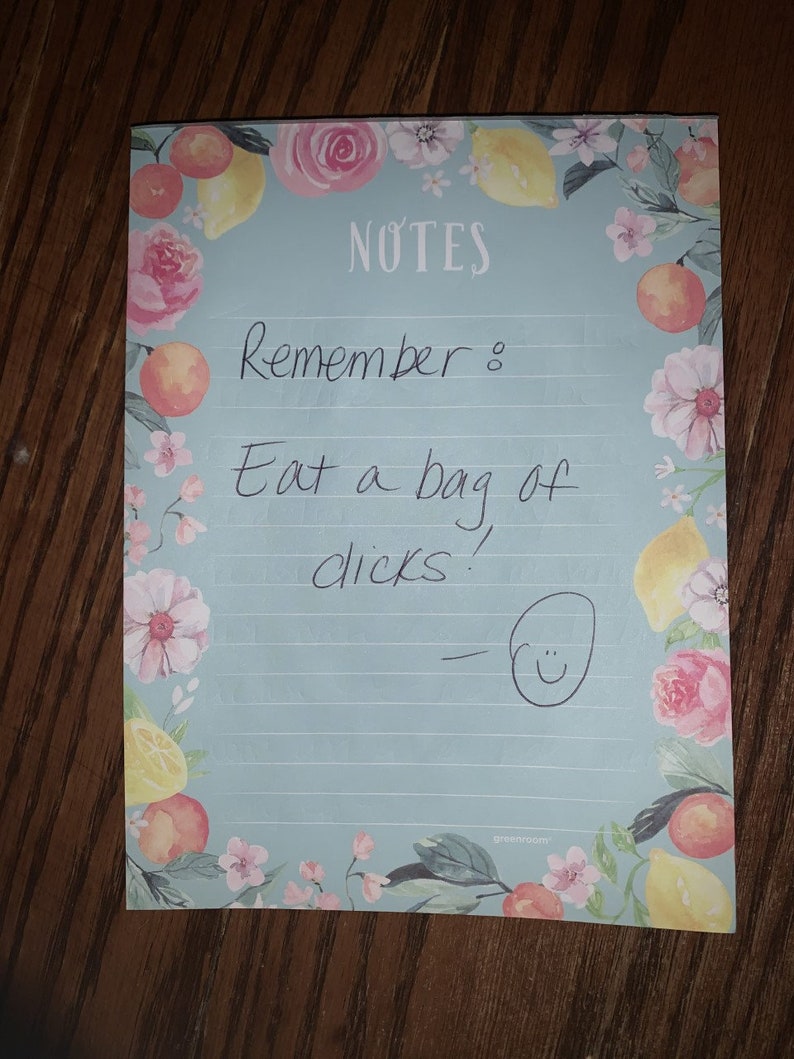 NOTES
Remember:
Eat a bag of
dicks!
-
greenroom®